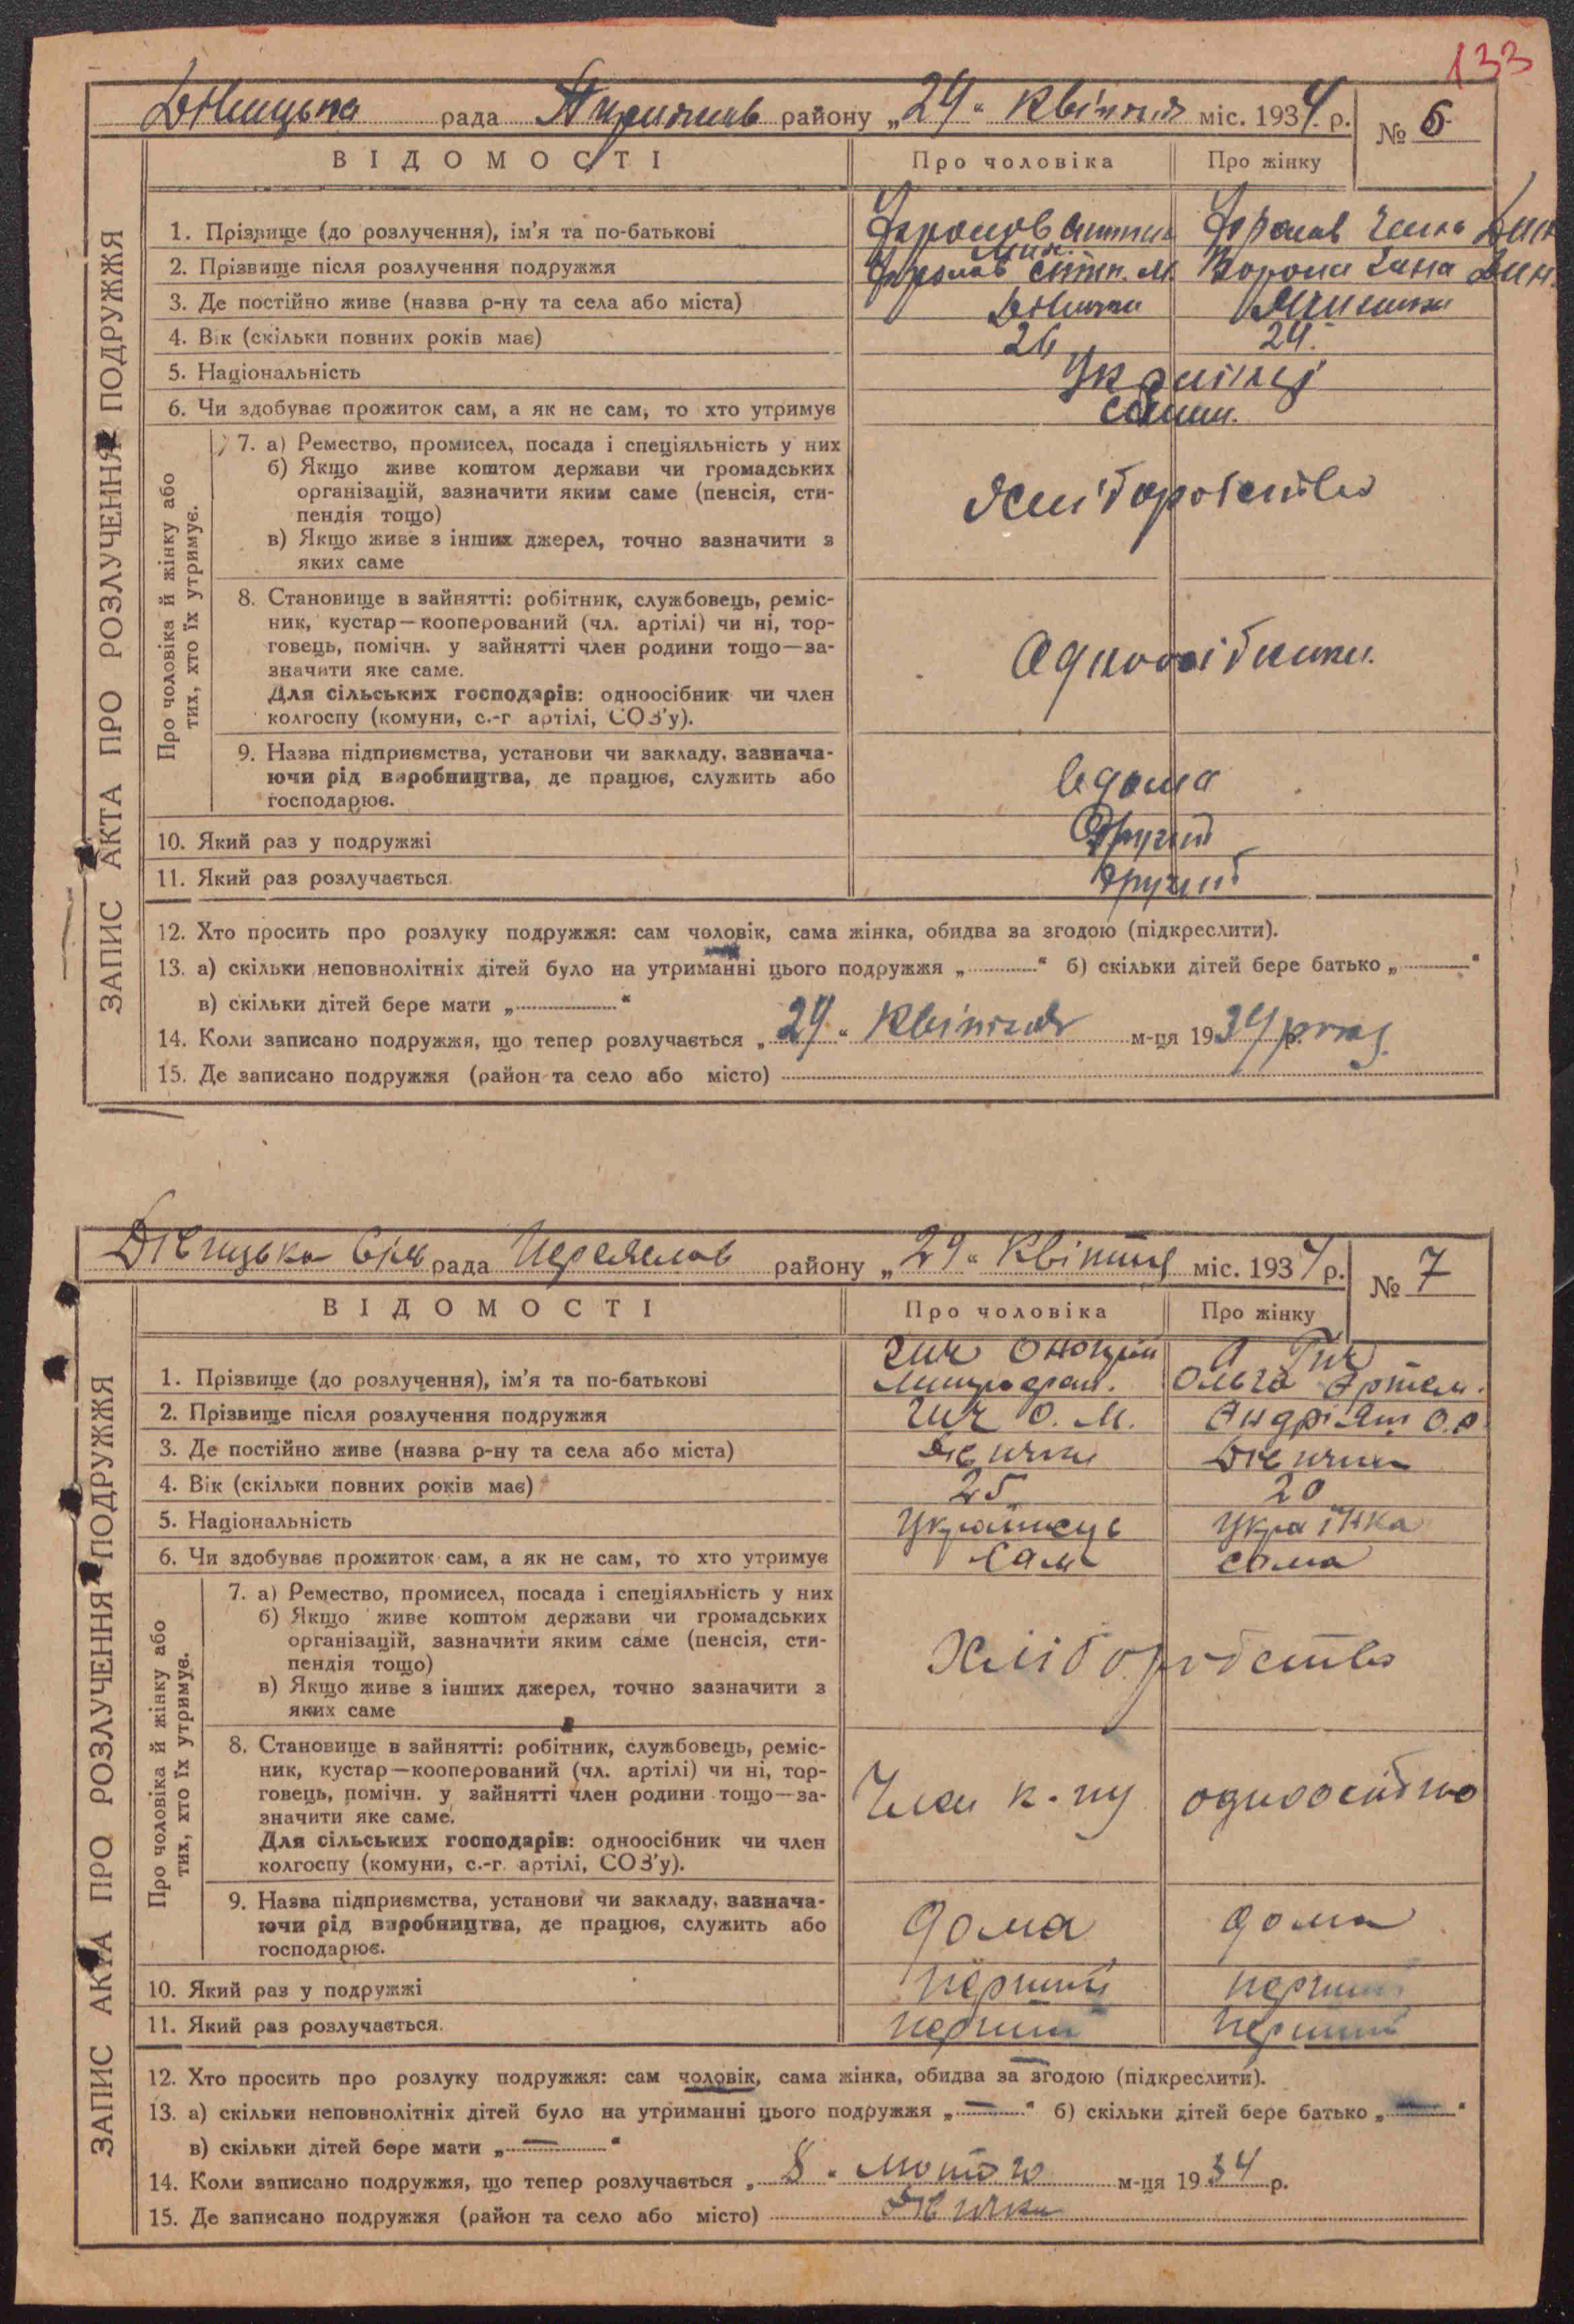 133
рада району „29“ Квітня міс. 1934 р. № 6
ВІДОМОСТІ Про чоловіка Про жінку
ЗАПИС АКТА ПРО РОЗЛУЧЕННЯ ПОДРУЖЖЯ
1. Прізвище (до розлучення), ім'я та по-батькові
2. Прізвище після розлучення подружжя
3. Де постійно живе (назва р-ну та села або міста)
4. Вік (скільки повних років має) 26 24.
5. Національність
6. Чи здобуває прожиток сам, а як не сам, то хто утримує
Про чоловіка й жінку або
тих, хто їх утримує.
7. а) Ремество, промисел, посада і спеціяльність у них
б) Якщо живе коштом держави чи громадських
організацій, зазначити яким саме (пенсія, сти-
пендія тощо)
в) Якщо живе з інших джерел, точно зазначити з
яких саме
8. Становище в зайнятті: робітник, службовець, реміс-
ник, кустар—кооперований (чл. артілі) чи ні, тор-
говець, помічн. у зайнятті член родини тощо—за-
значити яке саме.
Для сільських господарів: одноосібник чи член
колгоспу (комуни, с.-г артілі, СОЗ'у).
9. Назва підприємства, установи чи закладу, зазнача-
ючи рід виробництва, де працює, служить або
господарює.
10. Який раз у подружжі Другий
11. Який раз розлучається. другий
12. Хто просить про розлуку подружжя: сам чоловік, сама жінка, обидва за згодою (підкреслити).
13. а) скільки неповнолітніх дітей було на утриманні цього подружжя „ “ б) скільки дітей бере батько „ “
в) скільки дітей бере мати „ “
14. Коли записано подружжя, що тепер розлучається „29“ Квітня м-ця 1934 р.
15. Де записано подружжя (район та село або місто)
рада району „29“ Квітня міс. 1934 р. № 7
ВІДОМОСТІ Про чоловіка Про жінку
ЗАПИС АКТА ПРО РОЗЛУЧЕННЯ ПОДРУЖЖЯ
1. Прізвище (до розлучення), ім'я та по-батькові Гич Ольга Артем.
2. Прізвище після розлучення подружжя Гич О. М.
3. Де постійно живе (назва р-ну та села або міста) Дівички Дівички
4. Вік (скільки повних років має) 25 20
5. Національність Українець Українка
6. Чи здобуває прожиток сам, а як не сам, то хто утримує Сам сама
Про чоловіка й жінку або
тих, хто їх утримує.
7. а) Ремество, промисел, посада і спеціяльність у них
б) Якщо живе коштом держави чи громадських
організацій, зазначити яким саме (пенсія, сти-
пендія тощо)
в) Якщо живе з інших джерел, точно зазначити з
яких саме
Хліборобство
8. Становище в зайнятті: робітник, службовець, реміс-
ник, кустар—кооперований (чл. артілі) чи ні, тор-
говець, помічн. у зайнятті член родини тощо—за-
значити яке саме.
Для сільських господарів: одноосібник чи член
колгоспу (комуни, с.-г. артілі, СОЗ'у).
Член к-пу
9. Назва підприємства, установи чи закладу, зазнача-
ючи рід виробництва, де працює, служить або
господарює.
дома дома
10. Який раз у подружжі перший перший
11. Який раз розлучається. перший перший
12. Хто просить про розлуку подружжя: сам чоловік, сама жінка, обидва за згодою (підкреслити).
13. а) скільки неповнолітніх дітей було на утриманні цього подружжя „—“ б) скільки дітей бере батько „—“
в) скільки дітей бере мати „—“
14. Коли записано подружжя, що тепер розлучається „8“ лютого м-ця 1934 р.
15. Де записано подружжя (район та село або місто) Дівички